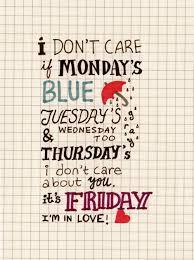 i DON'T CARE
if MONDAY'S
BLUE
TUESDAY'S gray
& WEDNESDAY TOO
THURSDAY'S
i don't care
about you,
it's FRIDAY
I'M IN LOVE!